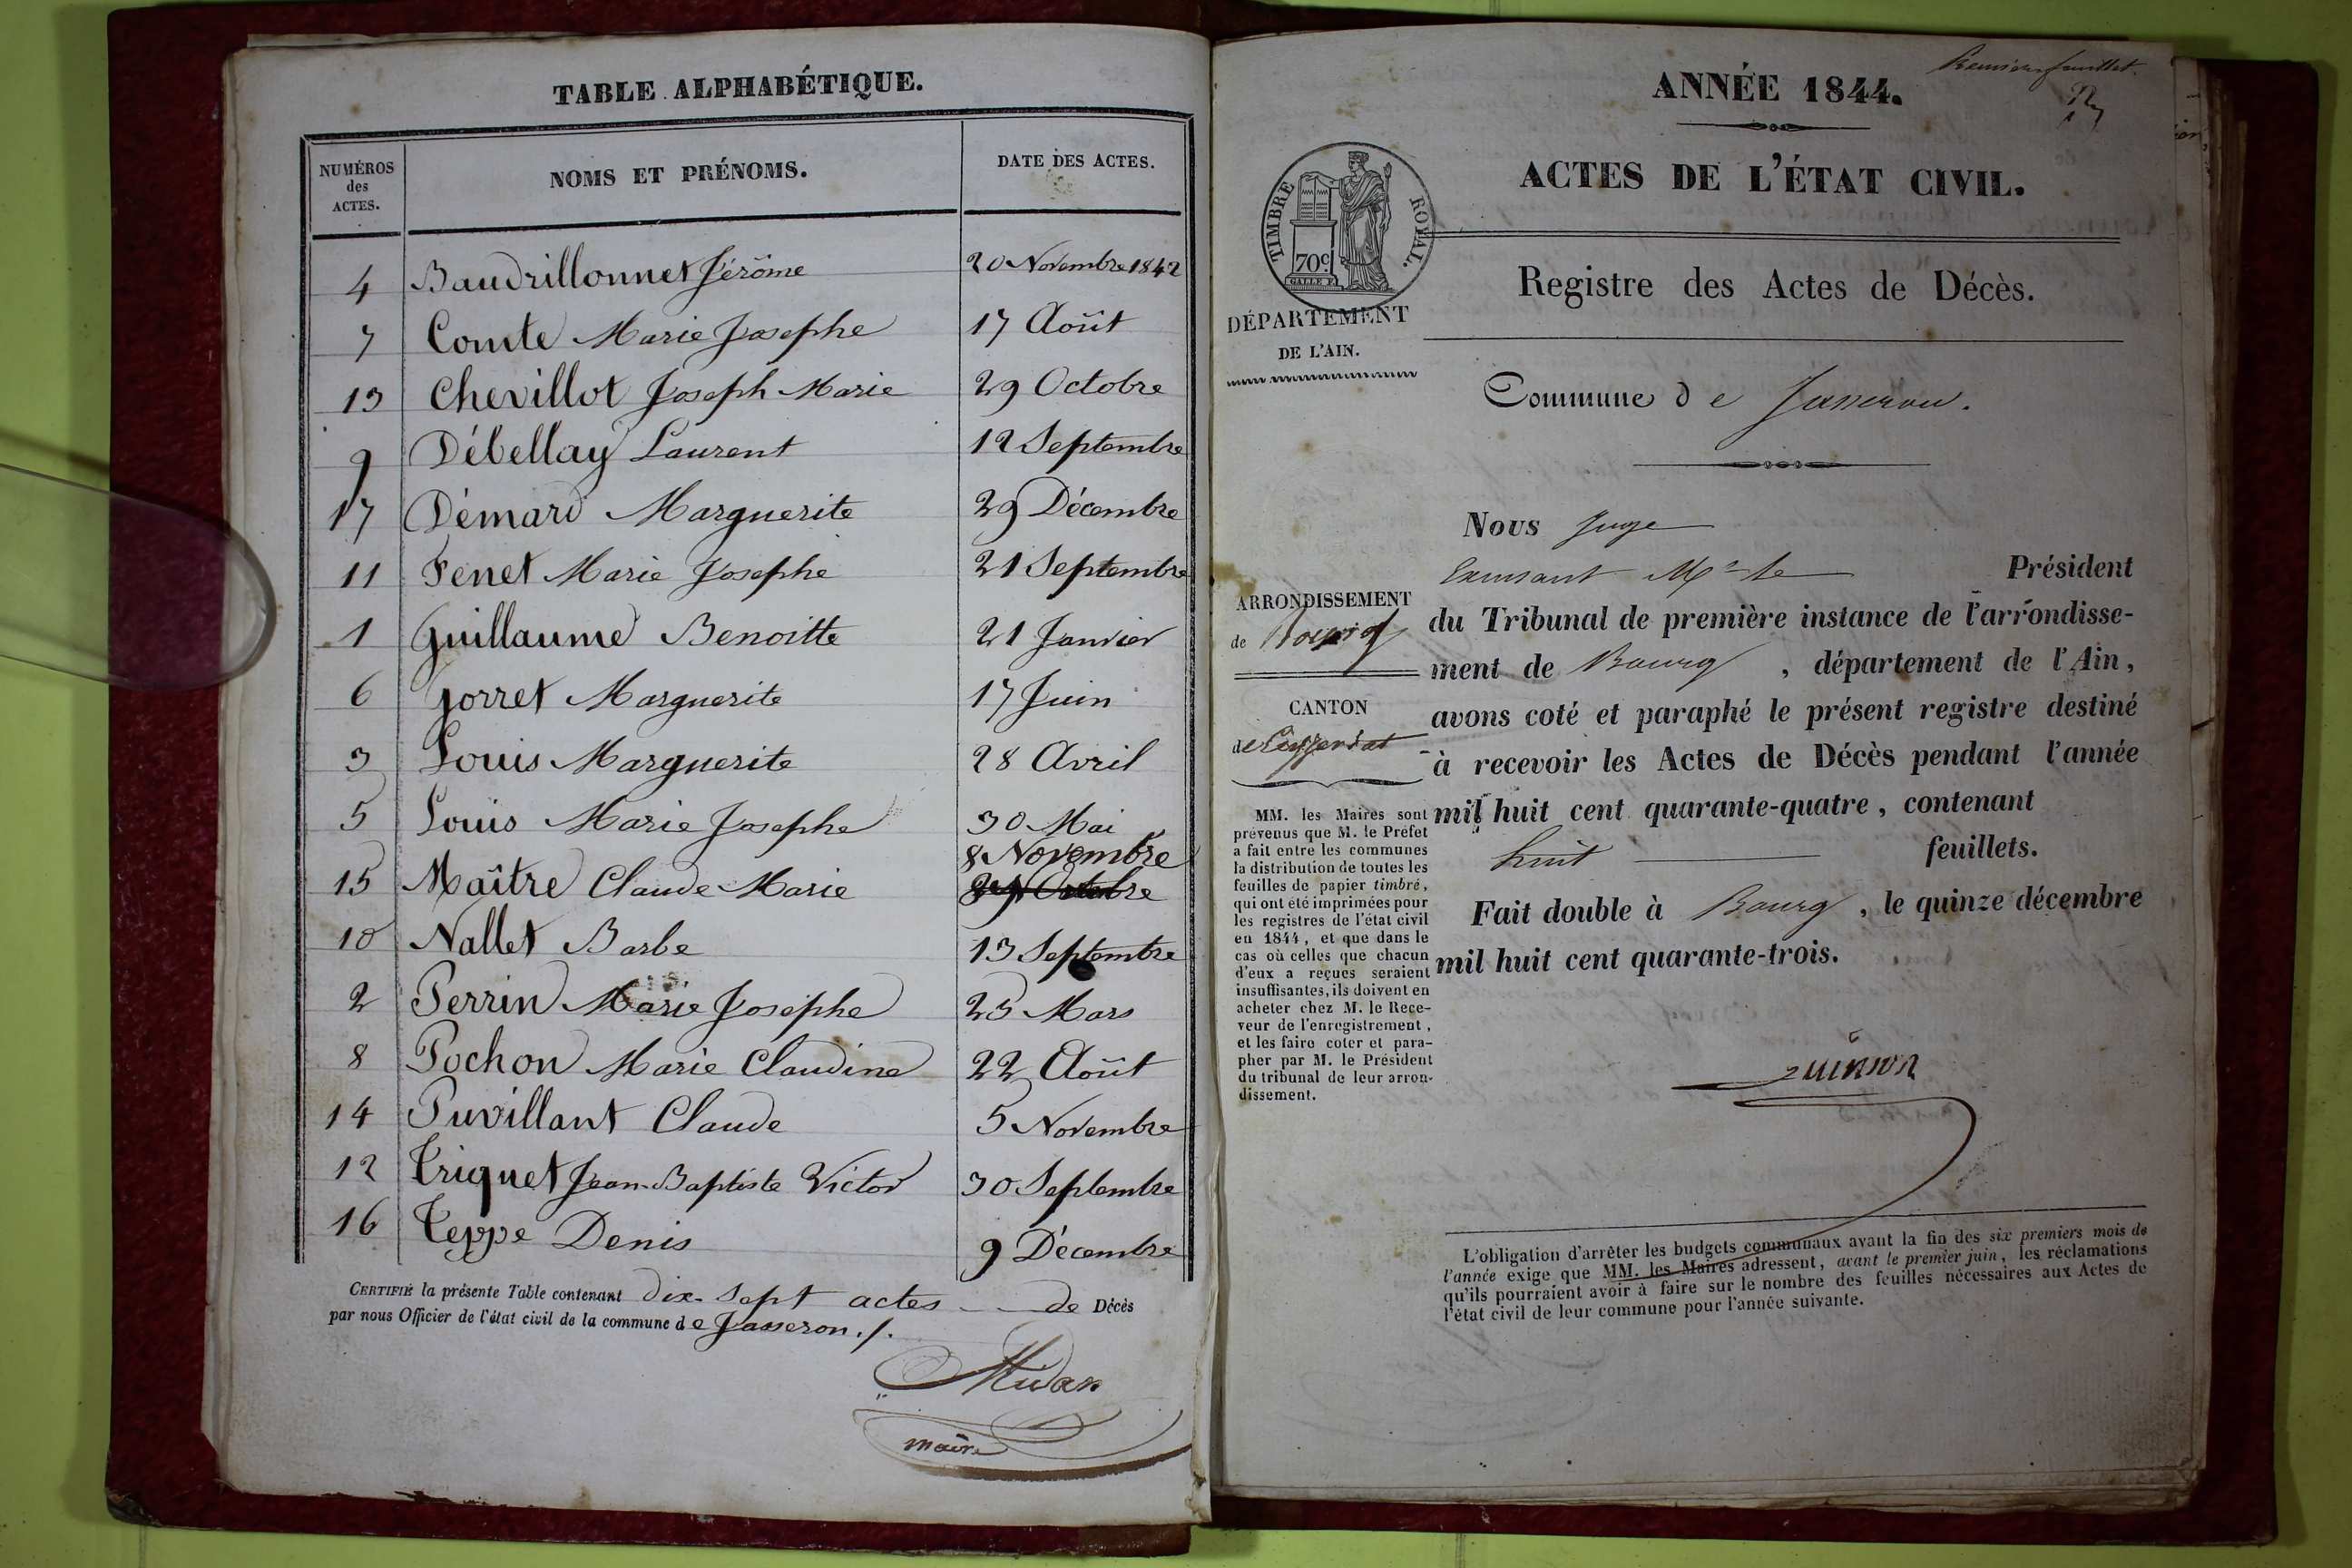 TABLE ALPHABÉTIQUE.
NUMÉROS des ACTES.
NOMS ET PRÉNOMS.
DATE DES ACTES.
4 Baudrillonnet Jérôme 20 Novembre 1842
7 Comte Marie Josephe 17 Août
13 Chevillot Joseph Marie 29 Octobre
9 Débellay Laurent 12 Septembre
17 Démard Marguerite 29 Décembre
11 Fenet Marie Josephe 21 Septembre
1 Guillaume Benoitte 21 Janvier
6 Gorret Marguerite 17 Juin
3 Louis Marguerite 28 Avril
5 Louis Marie Josephe 30 Mai
8 Novembre
15 Maître Claude Marie
10 Nallet Barbe 13 Septembre
2 Perrin Marie Josephe 25 Mars
8 Pochon Marie Claudine 22 Août
14 Puvillant Claude 5 Novembre
12 Triquet Jean-Baptiste Victor 30 Septembre
16 Teppe Denis 9 Décembre
CERTIFIÉ la présente Table contenant dix-sept actes de Décès
par nous Officier de l'état civil de la commune de Jasseron ./.
Midan
maire
Premier feuillet
ANNÉE 1844.
ACTES DE L'ÉTAT CIVIL.
TIMBRE ROYAL.
70c
DÉPARTEMENT
DE L'AIN.
Registre des Actes de Décès.
Commune de Jasseron.
Nous Juge
Président
du Tribunal de première instance de l'arrondisse-
ment de Bourg, département de l'Ain,
avons coté et paraphé le présent registre destiné
à recevoir les Actes de Décès pendant l'année
mil huit cent quarante-quatre, contenant
huit feuillets.
Fait double à Bourg, le quinze décembre
mil huit cent quarante-trois.
ARRONDISSEMENT
de Bourg
CANTON
de Ceyzeriat
MM. les Maires sont
prévenus que M. le Préfet
a fait entre les communes
la distribution de toutes les
feuilles de papier timbré,
qui ont été imprimées pour
les registres de l'état civil
en 1844, et que dans le
cas où celles que chacun
d'eux a reçues seraient
insuffisantes, ils doivent en
acheter chez M. le Rece-
veur de l'enregistrement,
et les faire coter et para-
pher par M. le Président
du tribunal de leur arron-
dissement.
Quinson
L'obligation d'arrêter les budgets communaux avant la fin des six premiers mois de
l'année exige que MM. les Maires adressent, avant le premier juin, les réclamations
qu'ils pourraient avoir à faire sur le nombre des feuilles nécessaires aux Actes de
l'état civil de leur commune pour l'année suivante.